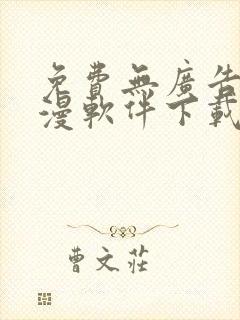 免費無廣告
漫軟件下載
曹文莊